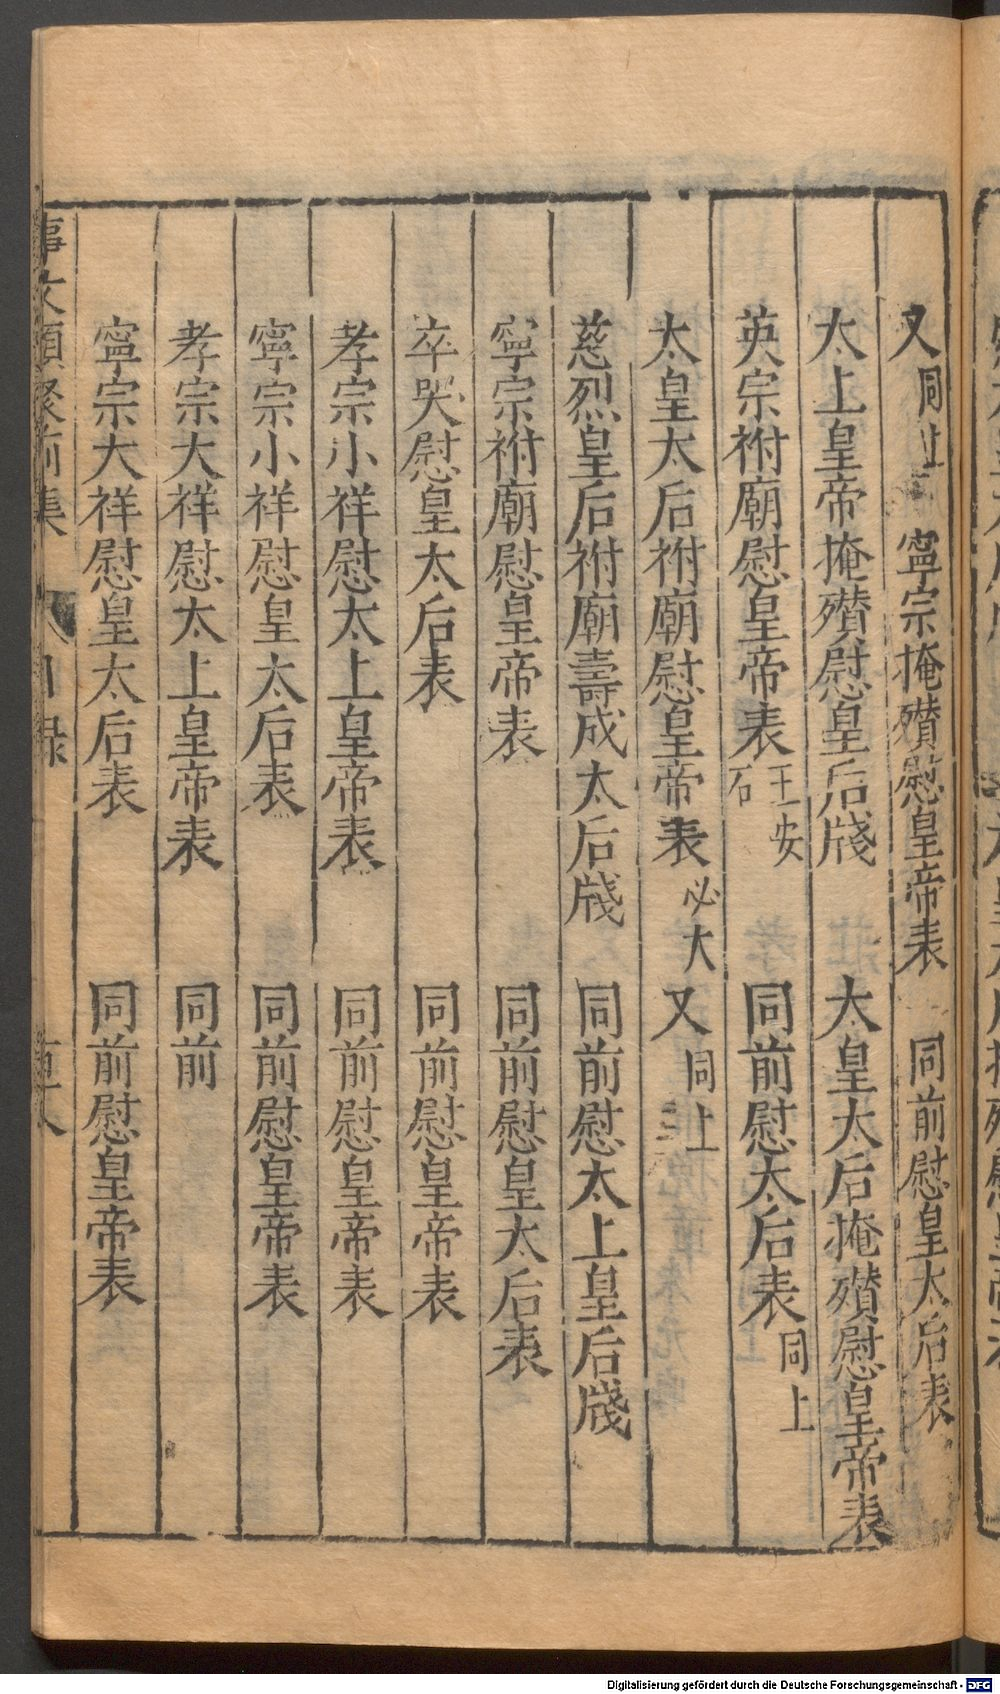 又 同上 寧宗掩殯慰皇帝表 同前慰皇太后表
太上皇帝掩殯慰皇后牋 太皇太后掩殯慰皇帝表
英宗祔廟慰皇帝表 王安石 同前慰太后表 同上
太皇太后祔廟慰皇帝表 必大 又 同上
慈烈皇后祔廟壽成太后牋 同前慰太上皇后牋
寧宗祔廟慰皇帝表 同前慰皇太后表
卒哭慰皇太后表 同前慰皇帝表
孝宗小祥慰太上皇帝表 同前慰皇帝表
寧宗小祥慰皇太后表 同前慰皇帝表
孝宗大祥慰太上皇帝表 同前
寧宗大祥慰皇太后表 同前慰皇帝表
事文類聚前集 目録
Digitalisierung gefördert durch die Deutsche Forschungsgemeinschaft - DFG